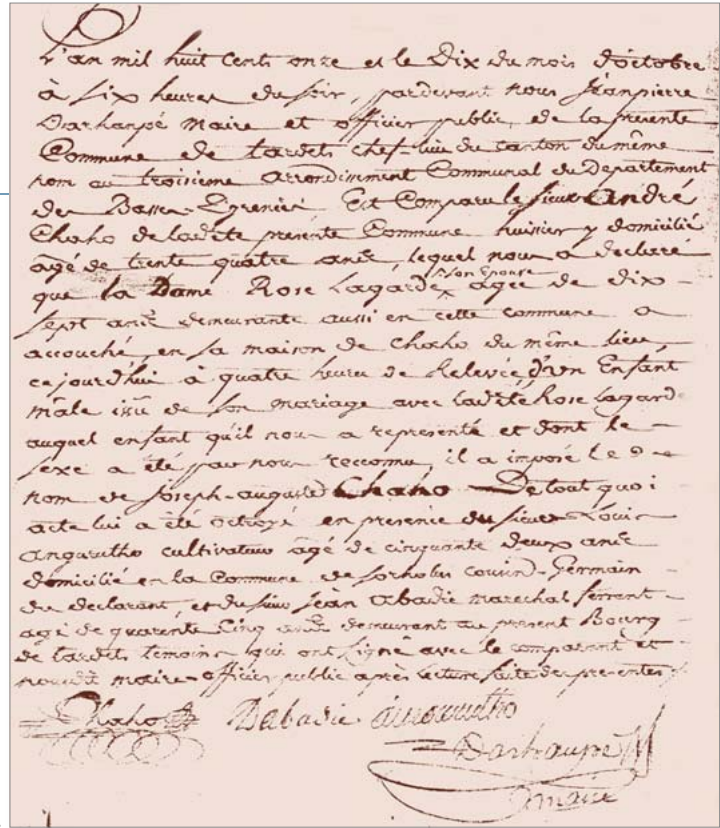 L'an mil huit cents onze et le Dix du mois d'octobre
à Six heures du soir, pardevant nous Jeanpierre
Darhanpé Maire et officier public de la presente
Commune de tardets chef-lieu du canton du même
nom au troisieme arrondissement Communal du Departement
des Basses-Pyrenées Est Comparu le sieur André
Chaho de ladite presente Commune huissier y domicilié
agé de trente quatre ans, lequel nous a declaré
que la Dame Rose Lagarde son Epouse agée de dix-
sept ans demeurante aussi en cette commune a
accouché, en sa maison de Chaho du même lieu,
cejourd'hui à quatre heures de Relevée d'un Enfant
mâle issu de son mariage avec ladite Rose Lagarde
auquel enfant qu'il nous a representé et dont le
sexe a été par nous reconnu, il a imposé le
nom de Joseph-auguste Chaho De tout quoi
acte lui a été octroyé en presence du sieur Louis
cultivateur agé de cinquante deux ans
domicilié en la Commune de Sorholus cousin-Germain
du declarant, et du sieur Jean abadie marechal ferrent
agé de quarente Cinq ans demeurant au present Bourg
de tardets temoins qui ont signé avec le comparant et
maire-officier public après lecture faite des presentes
Chaho Dabadie
Darhanpé
maire